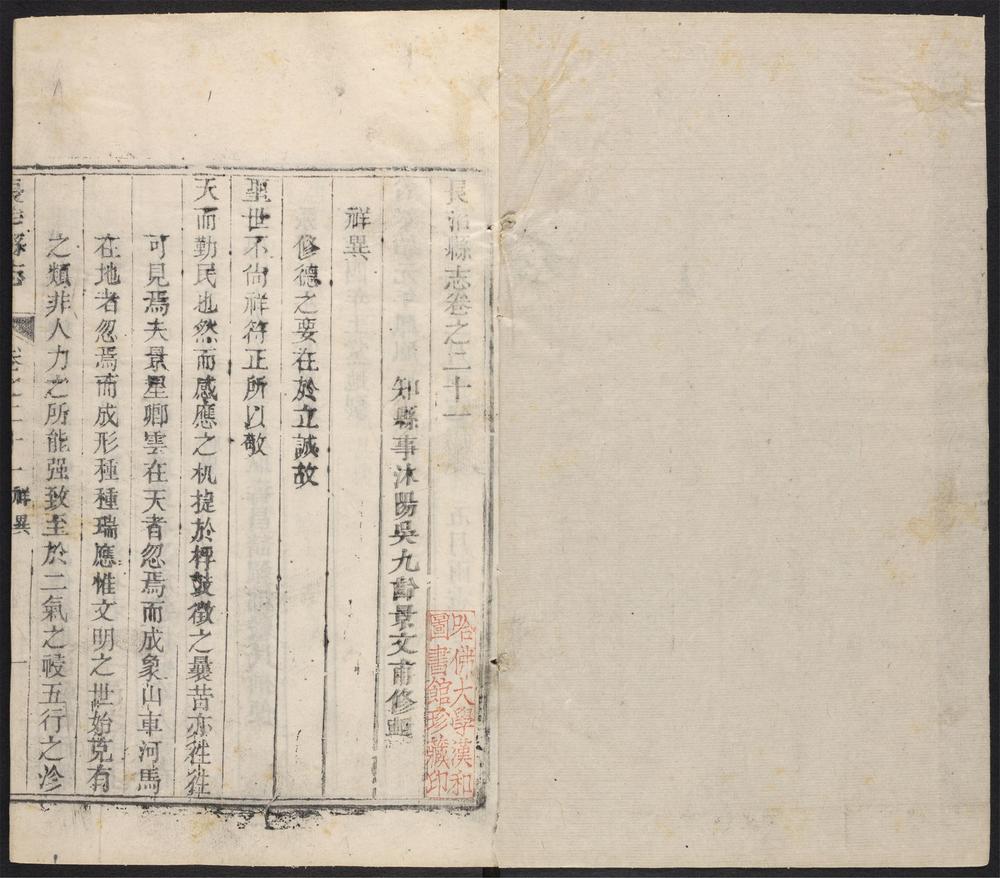 長治縣志卷之二十一
知縣事沐陽吳九齡景文甫修輯
祥異
修德之要在於立誠故
聖世不尙祥符正所以敬
天而勤民也然而感應之机捷於桴鼓徵之曩昔亦徃徃
可見焉夫景星卿雲在天者忽焉而成象山車河馬
在地者忽焉而成形種種瑞應惟文明之世始克有
之類非人力之所能强致至於二氣之祲五行之沴
長治縣志
卷之二十一
祥異
一
哈佛大學漢和
圖書館珍藏印